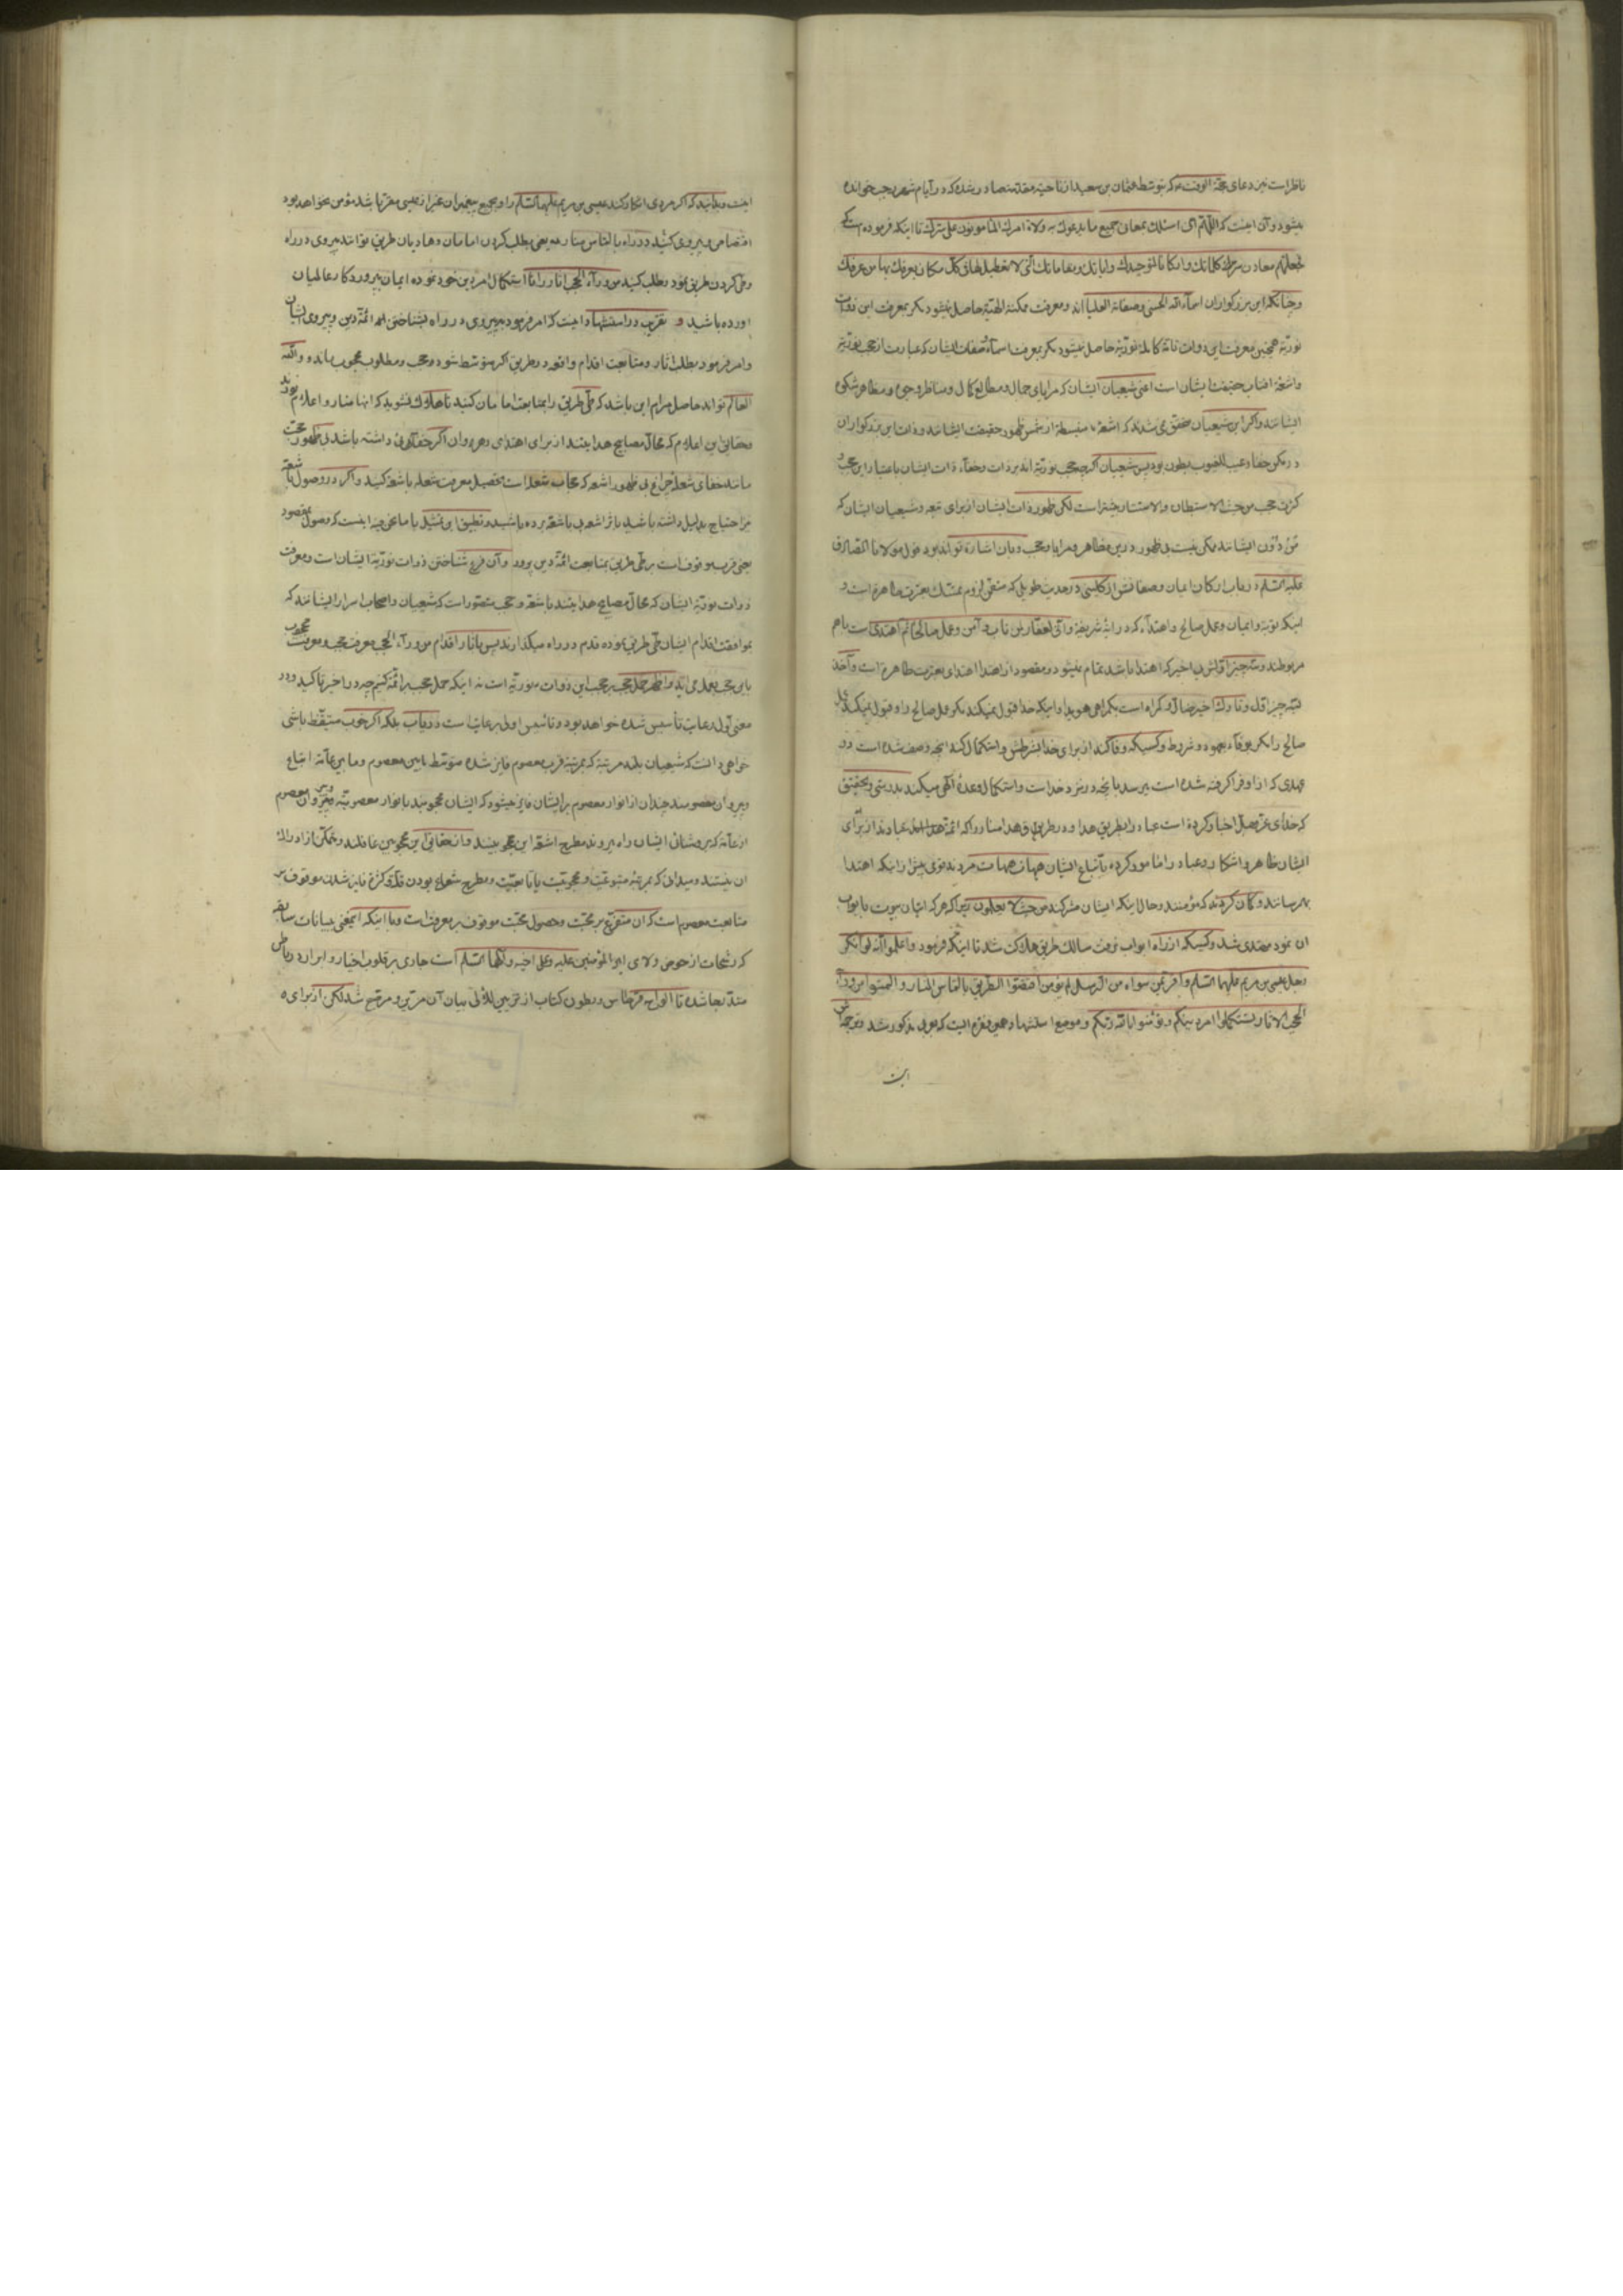 ناظر است نیز دعای حجّة الوقت که بتوسّط عثمان بن سعید از ناحیه مقدسه صادر شده که در ایام شهر رجب خوانده
میشود و آن اینست که اللّهم انّی اسئلک بمعانی جمیع ما یدعوک به ولاة امرک المأمونون علی سرّک تا اینکه فرموده است که
فجعلتهم معادن لکلماتک و ارکانا لتوحیدک و ایاتک و مقاماتک الّتی لا تعطیل لها فی کلّ مکان یعرفک بها من عرفک
و چنانکه این بزرکواران اسمآء الله الحسنی و صفاته العلیا اند و معرفت مکنه الهیّه حاصل نمیشود مکر بمعرفت این ذوات
نوریّه همچنین معرفت این ذوات تامّه کامله نوریّه حاصل نمیشود مکر بمعرفت اسمآء و صفات ایشان که عبارت از حجب نوریّه
و اشعّه افتاب حقیقت ایشان است اعنی شیعیان ایشان که مرایای جمال و مطالع کمال و مناظر وجوه و مظاهر شکوه
ایشانند و اکر این شیعیان محقق نمی شدند که اشعّه منبسطه از شمس ظهور حقیقت ایشانند و ذات این بزرکواران
در مکن خفا و غیب الغیوب بطون بود پس شیعیان اکرچه حجب نوریّه اند بر ذات و خفآء ذات ایشان باعتبار این حجب و
کثرت حجب من حیث الاستبطان و الاستتار بیشتر است لکن ظهور ذات ایشان از برای تبعه و شیعیان ایشان که
من دون ایشانند ممکن نیست بی ظهور در این مظاهر و مرایا و حجب و بان اشاره تواند بود قول مولانا الصّادق
علیه السّلم در باب ارکان ایمان و صفا فتق از کلینی در حدیث طویلی که متضمّن لزوم تمسّک بعترت طاهره است و
اینکه توبه و ایمان و عمل صالح و اهتدآء که در ایه شریفه و انّی لغفّار لمن تاب و آمن و عمل صالحا ثم اهتدی است باهم
مربوطند و سه چیز اوّلش بی اخیر که اهتدا باشد تمام نمیشود و مقصود از اهتدا اهتدای بعترت طاهره است و آخذ
بسه چیز اوّل و تارک اخیر ضالّ و کمراه است بکمراهی هویدا و اینکه خدا قبول نمیکند مکر عمل صالح را و قبول نمیکند عمل
صالح را مکر بوفآء بعهود و شروط و کسیکه وفا کند از برای خدا بشرطش و استکمال کند انچه وصف شده است در
عهدی که از او فرا کرفته شده است میرسد بانچه در نزد خداست و استکمال وعده الهی میکند بدرستی و بتحقیق
که خدای عزّ و جلّ اخبار کرده است عباد را بطریق هدا و در طریق هدا مناره را که ائمّه هدا عبادند از برای
ایشان ظاهر و اشکار و عباد را مامور کرده باتّباع ایشان هیهات هیهات مردند قومی پیش از اینکه اهتدا
بهم رسانند و کمان کردند که مؤمنند و حال اینکه ایشان مشرکند من حیث لا یعلمون زیرا که هر که اتیان بیوت با ابواب
ان نمود مهتدی شد و کسیکه از راه ابواب نرفت سالک طریق هلاکت شد تا اینکه فرمود و اعلموا انّه لو انکر
رجل عیسی بن مریم علیهما السّلم و اقرّ بمن سواه من الرّسل لم یؤمن اقتصّوا الطّریق بالتماس المنار و التمسوا من ورآء
الحجب الاثار تستکملوا امر دینکم و تؤمنوا بالله ربّکم و موضع استشهاد همین فقره ایست که بعربی مذکور شد و ترجمه اش
این
اینست و بدانید که اکر مردی انکار کند عیسی بن مریم علیهما السّلم را و بجمیع پیغمبران غیر از عیسی مقرّ باشد مؤمن نخواهد بود
اقتصاص و پیروی کنید در راه بالتماس مناره یعنی بطلب کردن امامان و هادیان طریق توانند پیروی در راه
وطی کردن طریق نمود و طلب کنید من ورآء الحجب اثار را تا استکمال امر دین خود نموده ایمان بپروردکار عالمیان
اورده باشید و تقریب در استشهاد اینست که امر فرمود به پیروی در راه بشناختن ائمّه دین و پیروی ایشان
وامر فرمود بطلب اثار و متابعت اقدام واقعه در طریق اکر متوسّط شود در حجب و مطلوب محجوب ماند و والله
العالم تواند حاصل مرام این باشد که طیّ طریق را بمتابعت امامان کنید تا هلاک نشوید که انها منار و اعلام نورند
و حقایق این اعلام که محالّ مصابیح هدایتند از برای اهتدای رهروان اکر خفآئی داشته باشد بی ظهور حجب
مانند خفای شعله چراغ بی ظهور اشعه که حجاب شعله است تحصیل معرفت شعله باشعه کنید و اکر در وصول باشعّه
نیز احتیاج بدلیل داشته باشید باثر اشعه پی باشعّه برده باشید و تطبیق این تمثیل با ما نحن فیه اینست که وصول بمقصود
یعنی قرب موقوف است بر طیّ طریق بمتابعت ائمّه دین پرور و آن فرع شناختن ذوات نوریّه ایشان است و معرفت
ذوات نوریّه ایشان که محالّ مصابیح هدایتند باشعّه و حجب متصوّر است که شیعیان و اصحاب اسرار ایشانند که
بموافقت اقدام ایشان طیّ طریق نموده قدم در راه میکذارند پس باثار اقدام من ورآء الحجب معرفت حجب و معرفت محجوب
باین حجب بعمل می اید و اظهر حمل حجب بر حجب این ذوات نوریّه است نه اینکه حمل حجب بر ائمّه کنیم چه در اخیر تاکید و در
معنی اوّل رعایت تأسیس شده خواهد بود و تأسیس اولی برعایت است دریاب بلکه اکر خوب متیقّظ باشی
خواهی دانست که شیعیان بلند مرتبه که بمرتبه قرب معصوم فایز شده متوسّط مابین معصوم و ما بین عامّه اتباع
و پیروان معصومند چندان از انوار معصوم بر ایشان فایز میشود که ایشان محجوبند بانوار معصومیّه و غیر پیروان معصوم
از عامّه که بروشنائی ایشان راه میروند مطرح اشعّه این محجوبینند و از حقایق این محجوبین غافلند و متمکّن از ادراک
ان نیستند و میدانی که بمرتبه متبوعیّت و محجوبیّت یا تابعیّت و مطرح شعاع بودن قلّت و کثرت فایز شدن موقوف بر
متابعت معصوم است که ان متفرّع بر محبّت و حصول محبّت موقوف بر معرفت است و با اینکه اینمعنی ببیانات سابقه
که رشحات از حوض ولای امیر المؤمنین علیه و علی اخیه و آلهما السّلم است جاری بر قلوب اخیار و ابرار در ریاض
متدبّجا شده تا الواح قرطاس و بطون کتاب از تزیین للآلی بیان آن مزیّن و مرصّع شد لکن از برای